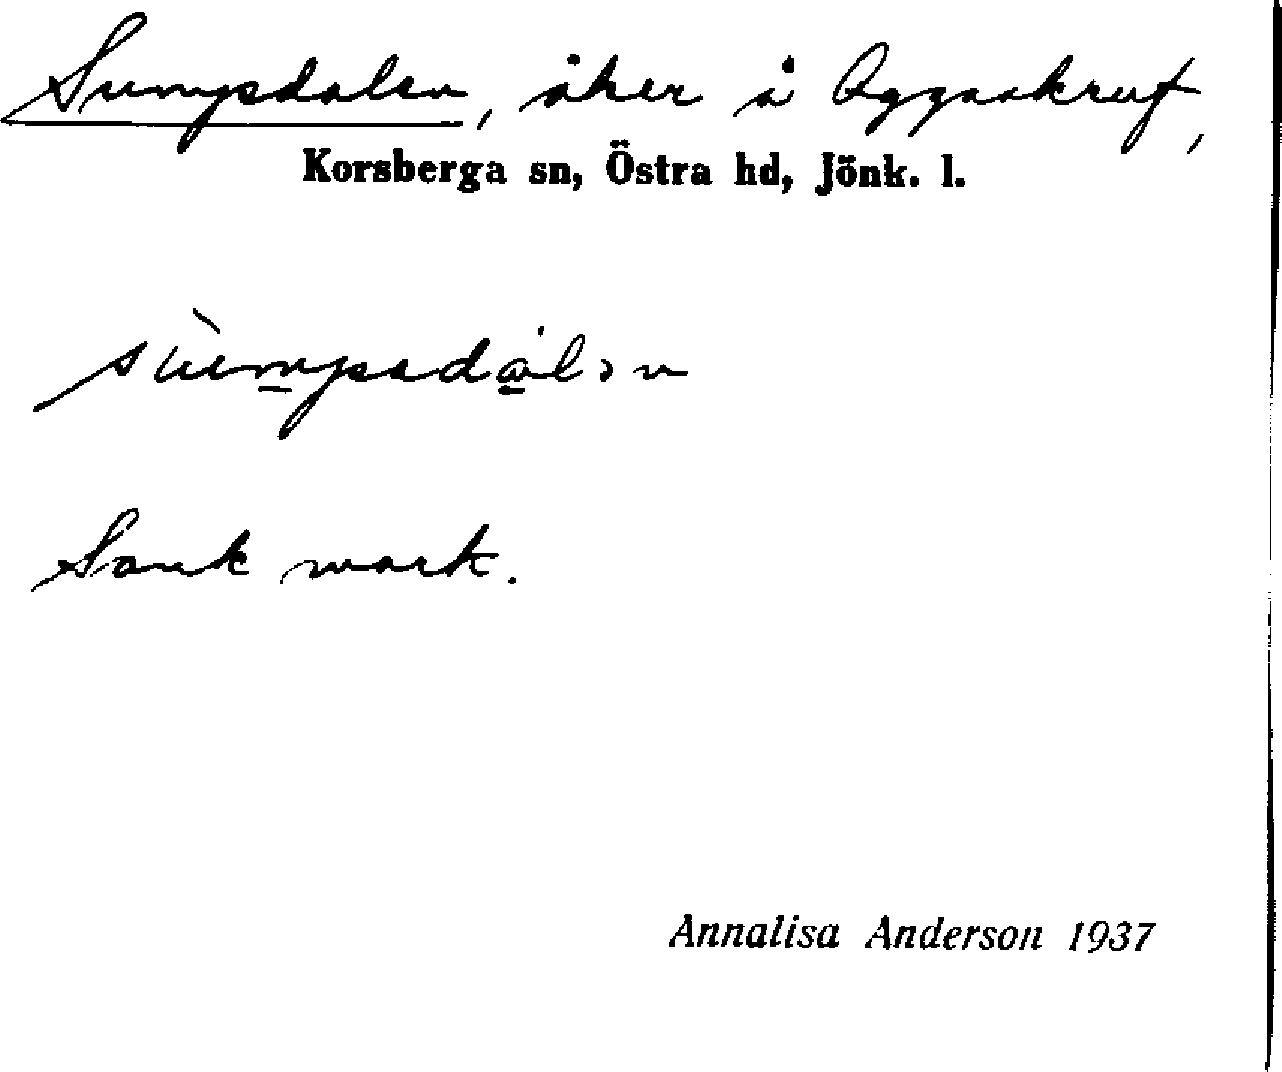 Sumpsdalen, åker å Aggaskruf,
Korsberga sn, Östra hd, Jönk. l.
Sank mark.
Annalisa Anderson 1937